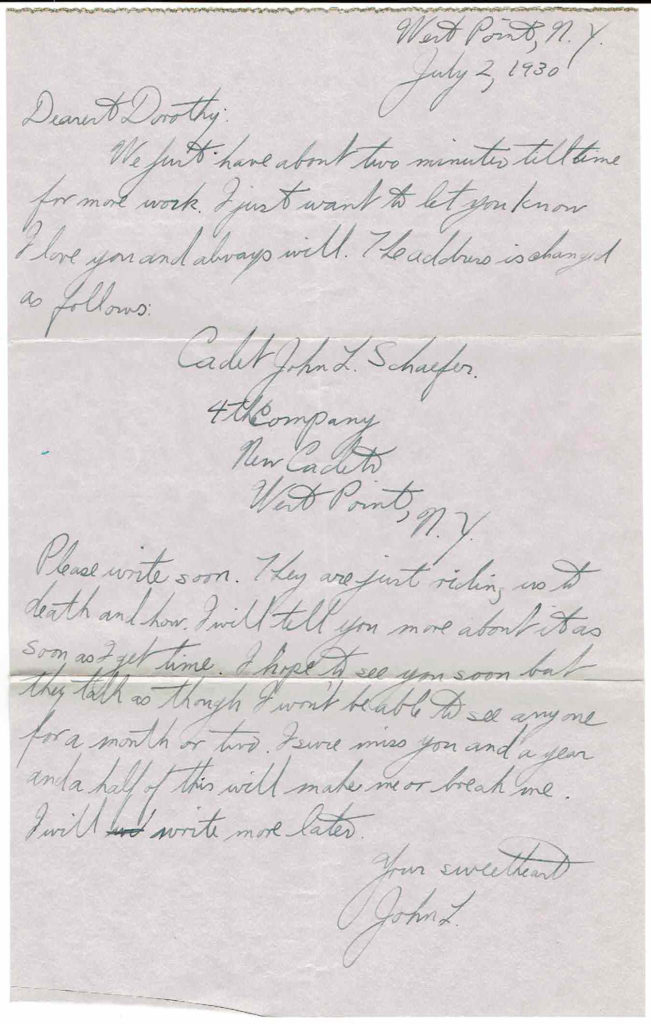 West Point, N.Y.
July 2, 1930
Dearest Dorothy:
We just have about two minutes till time
for more work. I just want to let you know
I love you and always will. The address is changed
as follows:
Cadet John L. Schaefer.
4th Company
New Cadets
West Point,
N.Y.
Please write soon. They are just riding us to
death and how. I will tell you more about it as
soon as I get time. I hope to see you soon but
they talk as though I won't be able to see anyone
for a month or two. I sure miss you and a year
and a half of this will make me or break me.
I will write more later.
Your sweetheart
John L.